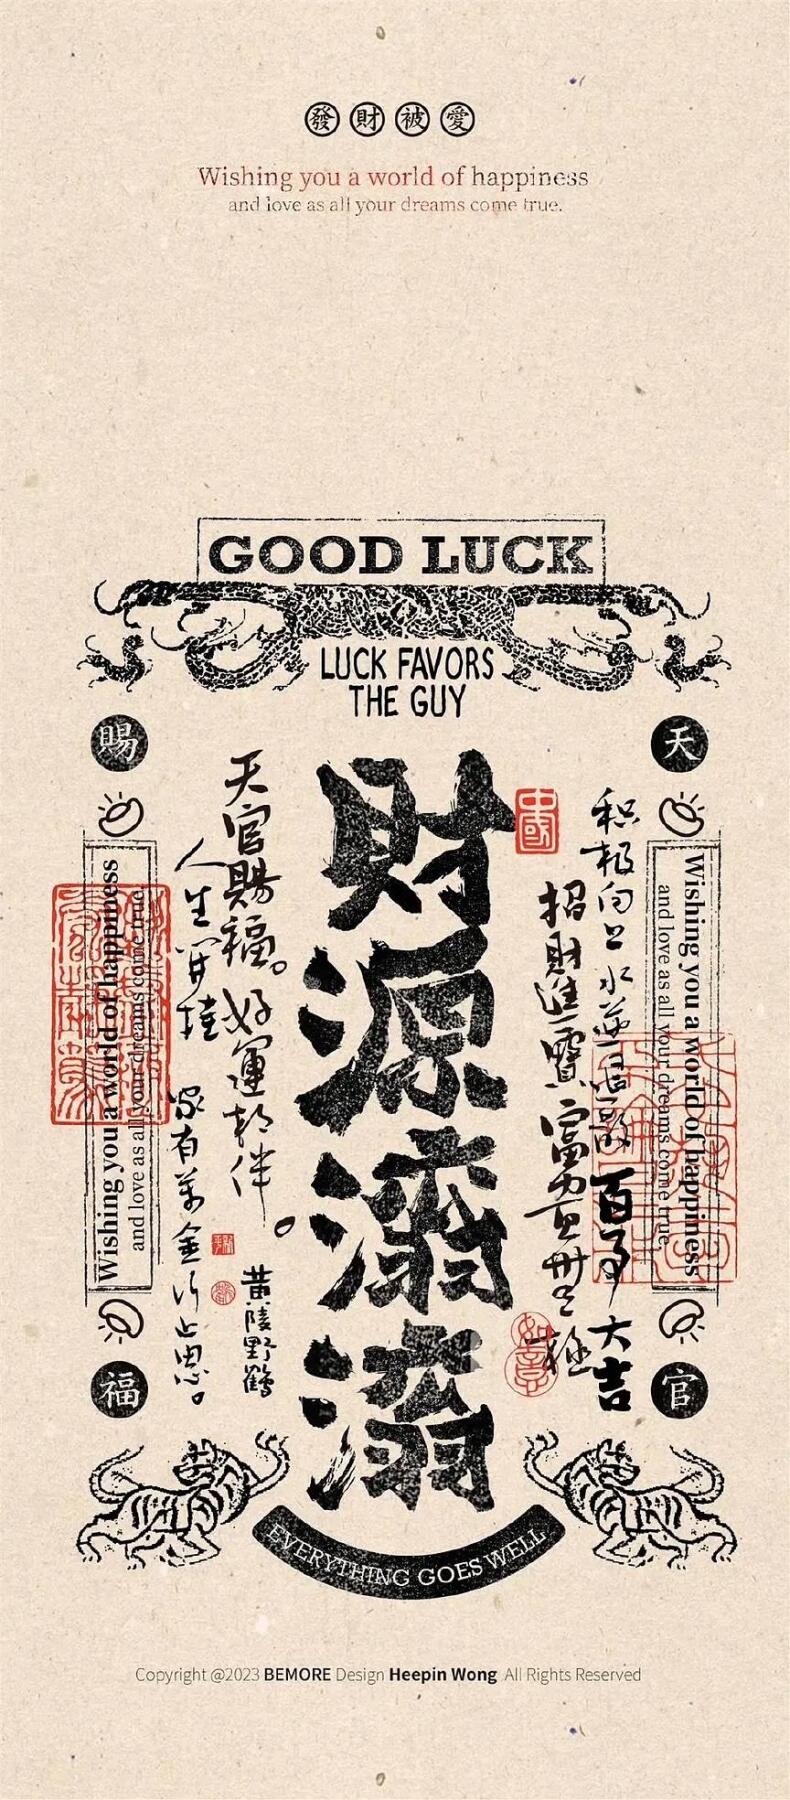 發財被愛
Wishing you a world of happiness
and love as all your dreams come true.
GOOD LUCK
LUCK FAVORS
THE GUY
天
官
賜
福
Wishing you a world of happiness
and love as all your dreams come true.
积极向上水逆退散百事大吉
招財進寶富貴無極
如意
中國
財源滚滚
天官賜福。好運相伴
黄陵野鶴
人生開挂家有萬金行止由心。
Wishing you a world of happiness
and love as all your dreams come true.
EVERYTHING GOES WELL
Copyright @2023 BEMORE Design Heepin Wong All Rights Reserved